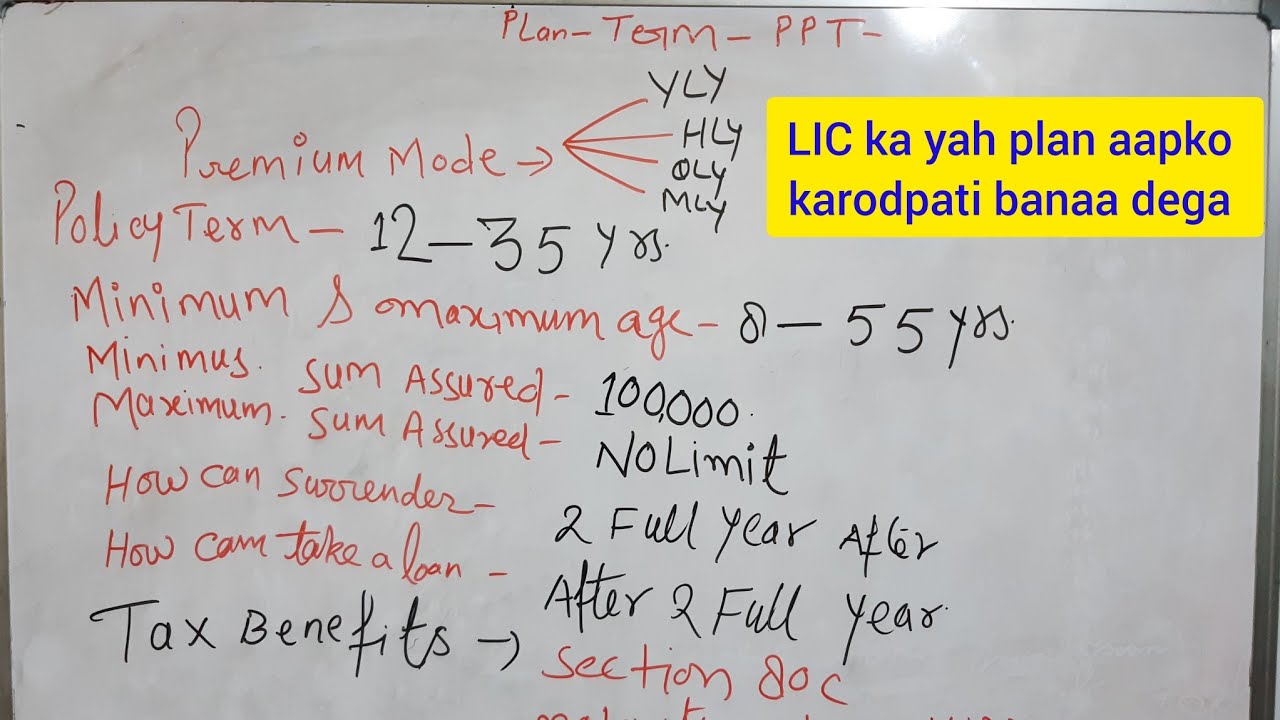 Plan - Term - PPT -
YLY
Premium Mode → HLY
QLY
MLY
LIC ka yah plan aapko
karodpati banaa dega
Policy Term - 12 - 35 yrs.
Minimum & maximum age - 8 - 55 yrs.
Minimus. Sum Assured - 100,000.
Maximum. Sum Assured - NO Limit
How can surrender - 2 Full year After
How cam take a loan - After 2 Full year.
Tax Benefits →
Section 80C